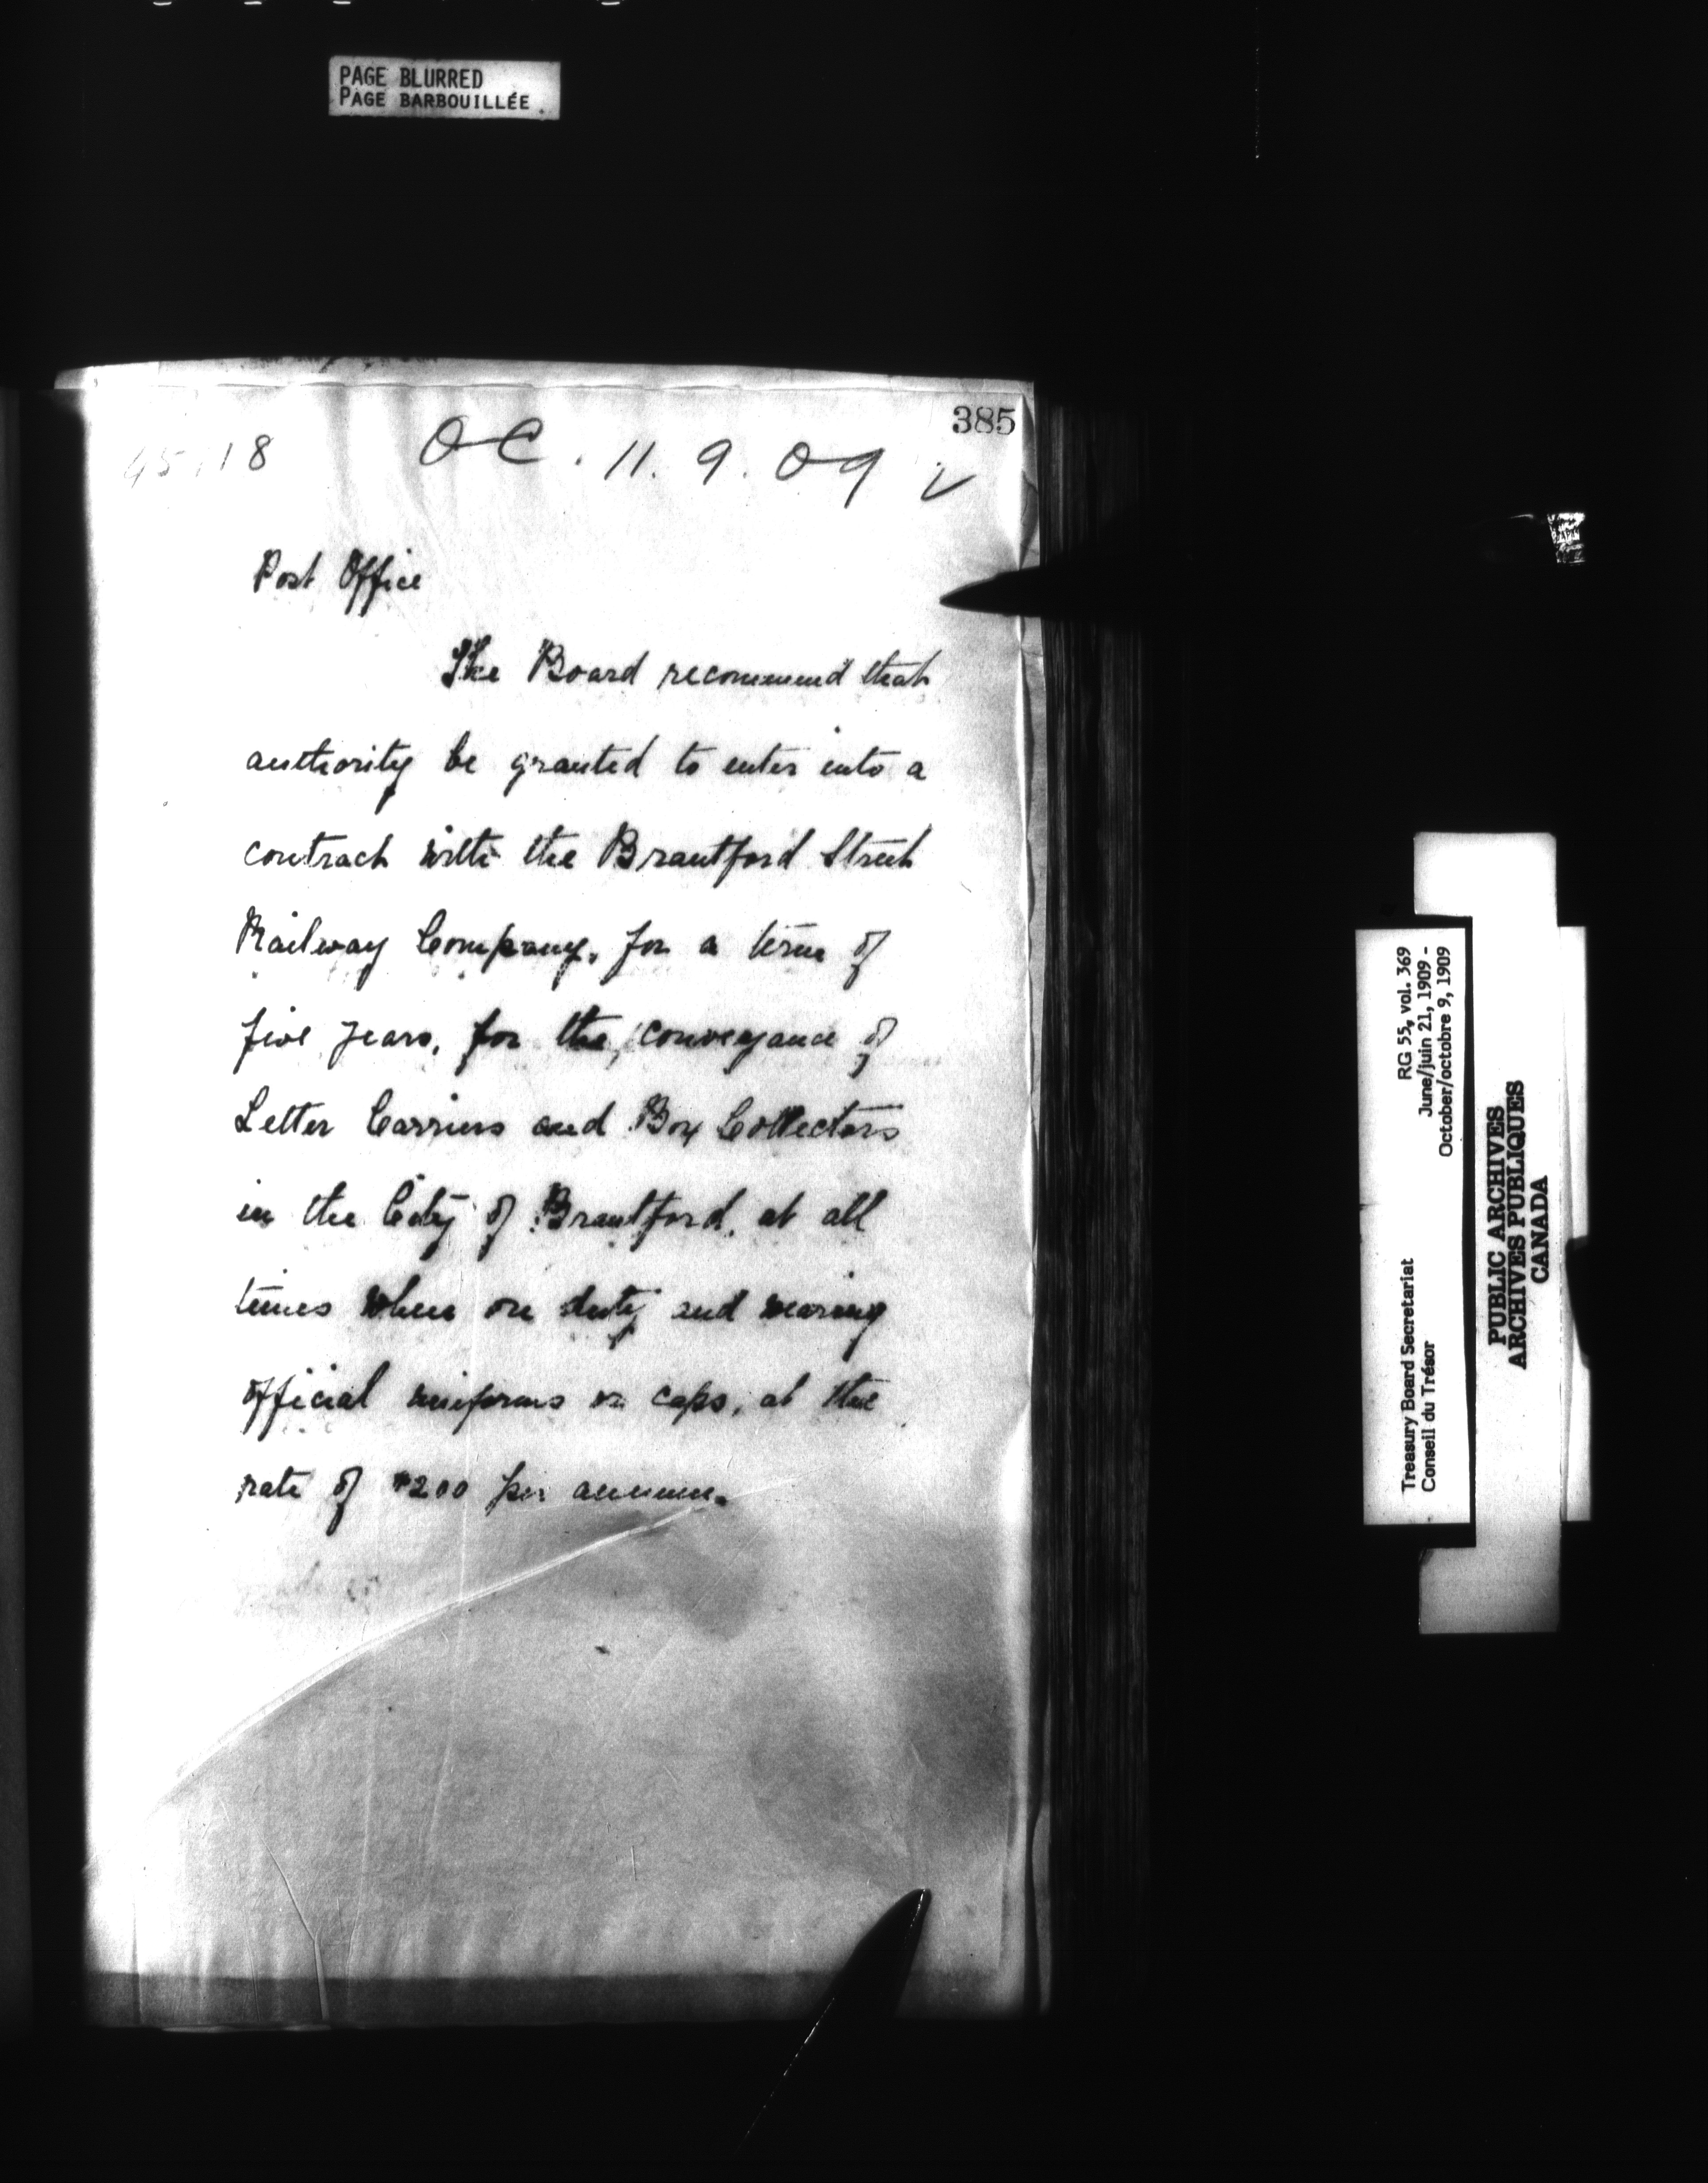 PAGE BLURRED
PAGE BARBOUILLÉE
385
OC. 11. 9. 09
Post Office
The Board recommend that
authority be granted to enter into a
contract with the Brantford Street
Railway Company, for a term of
five years, for the conveyance of
Letter Carriers and Box Collectors
in the City of Brantford, at all
times when on duty and wearing
official uniforms or caps, at the
rate of $200 per annum.
Treasury Board Secretariat RG 55, vol. 369
Conseil du Trésor June/juin 21, 1909 -
October/octobre 9, 1909
PUBLIC ARCHIVES
ARCHIVES PUBLIQUES
CANADA